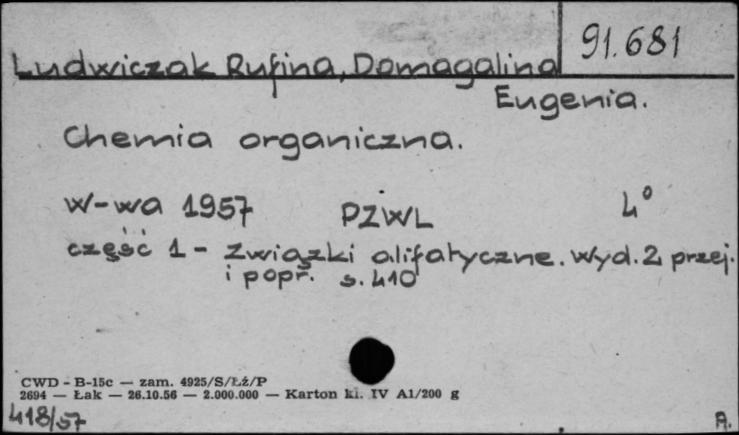 91.681
Ludwiczak Rufina, Domagalina
Eugenia.
Chemia organiczna.
W-wa 1957 PZWL 4°
część 1 - Związki alifatyczne. Wyd. 2 przej.
i popr. s. 410
CWD - B-15c — zam. 4925/S/Łż/P
2694 — Łak — 26.10.56 — 2.000.000 — Karton kl. IV A1/200 g
418/57
A.